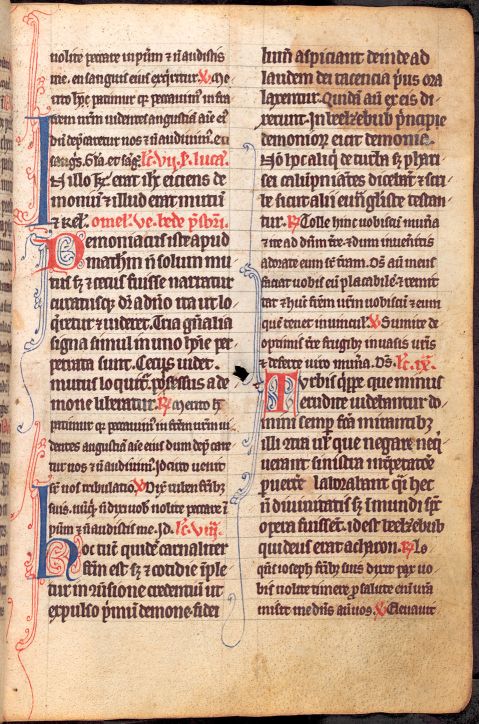 nolite peccare in pūm & ñ audistis
me. en sanguis eius exqiritur. V Me
rito hec patimur qr peccauim9 in fra
trem nrm uidentes angustiā aīe ei9
dū dep̄caretur nos & ñ audiuim9. en
sangs. Gła et sags. lc. VII. s. lucā.
IN illo t̄. erat ihc eiciens de
monium & illud erat mutū
& rel. omel. ve. bede p̄sbri.
Demoniacus iste apud
matheū ñ solum mu
tus sz & cecus fuisse narratur
curatusqz dr̄ a dn̄o ita ut lo
qretur & uideret. Tria gn̄alia
signa simul in uno hoīe per
petrata sunt. Cecus uidet.
mutus loquitr. possessus a de
mone liberatur. R Merito h̄
patimur qr peccauim9 in frēm nr̄m ui
dentes angustiā aīe eius dum dep̄care
tur nos & ñ audiuim9. Idcirco uenit
sr nos tribulatio. V Dix̄ ruben fribz
suis. nūqd ñ dixi uob nolite peccare ī
pūm & ñ audistis me. Id. lc. VIII.
hoc tunc quidē carnaliter
fc̄m est sz & cotidie īple
tur in 9uersione credentiū ut
expulso p̄mū demone. fidei
lum̄ aspiciant deinde ad
laudem dei tacencia p̄us ora
laxentur. Quidā aū ex eis di
xerunt. In beelzebub p̄ncipe
demonior eicit demonia.
Nō hoc aliq de turba sz phari
sei calūpniātes dicebāt & scri
be sicut alii eungliste testan
tur. R Tolle hinc uobiscū mun̄a
& ite ad dn̄m tr̄e. & dum inuenitis
adorate eum sr̄ tram. Ds aū meus
faciat uobis eū placabilē & remit
tat & hūc frēm ur̄m uobiscū & eum
quē tenet in uinculˢ. V Sumite de
optimis tr̄e frugibz in uasis ur̄is
& deferte uiro mun̄a. Ds. lc. IX.
Turbis qppe que minus
erudite uidebantur do
mini semp fc̄a mirantibz
illi cͣtra ut̄ que negare neq
uerant sinistra int̄p̄tatōe
p̄uerte laborabant qi hec
ñ diuinitatis sz ī mundi spc
opera fuissent. id est beelzebub
qui deus erat acharon. R Lo
qut9 ioseph frībz suis dixit pax uo
bis nolite timere p̄ salute eni ur̄a
misit me dn̄s an̄ uos. V Eleuauit